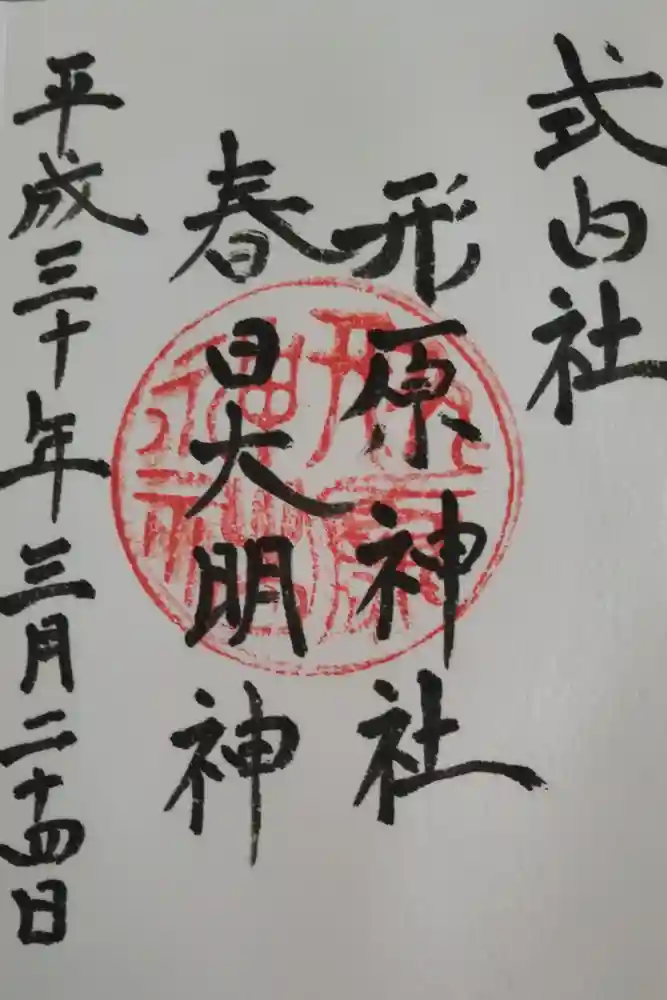 式内社
形原神社
春日大明神
平成三十年三月二十四日
形原神社